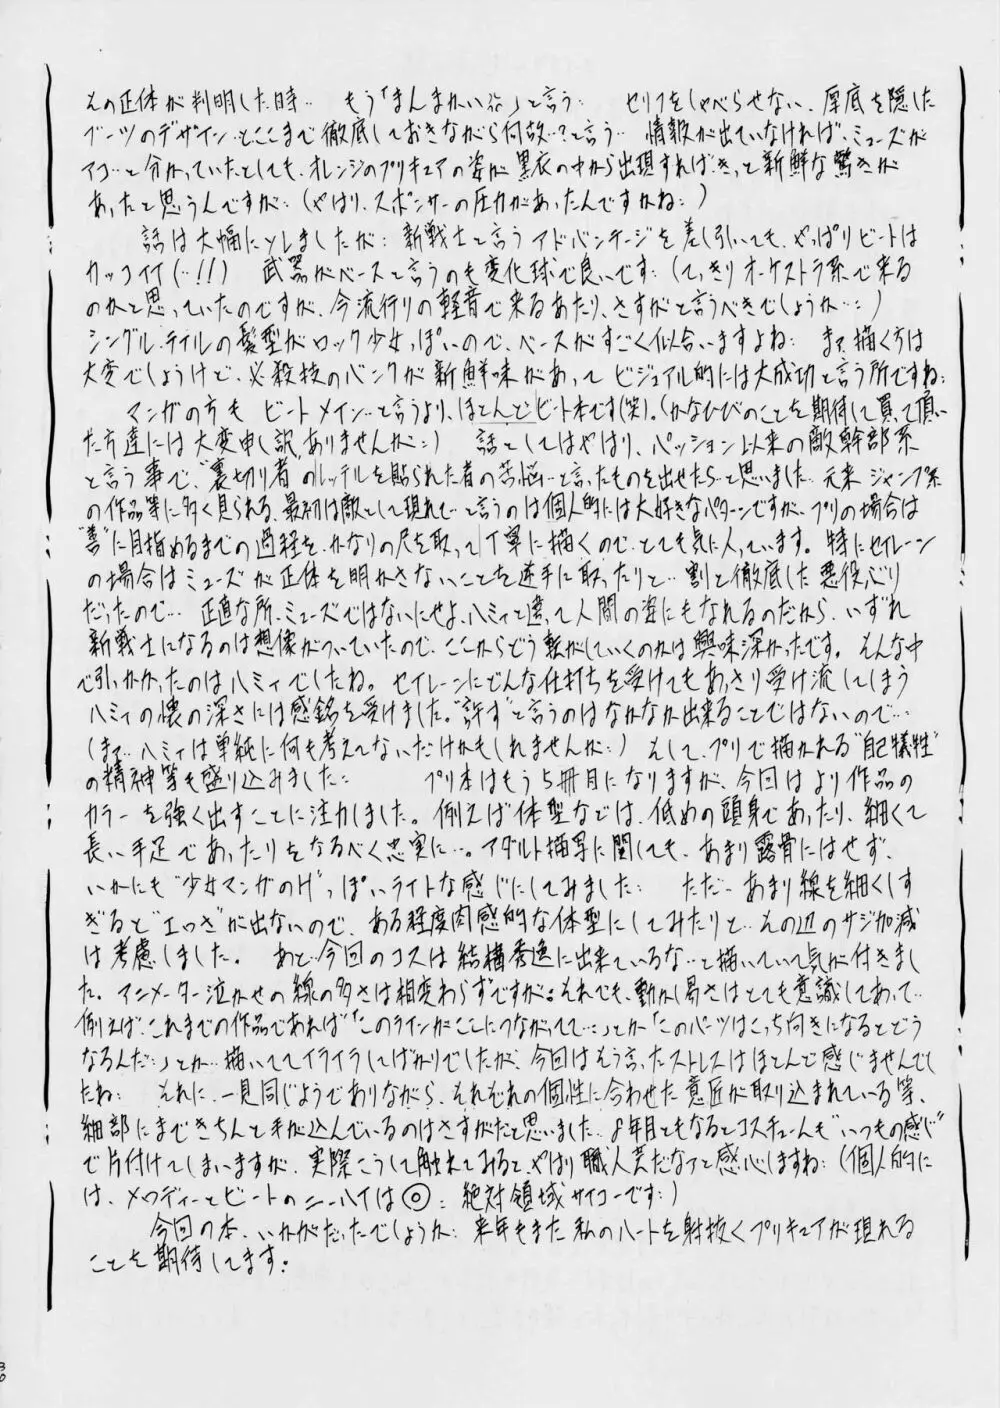 その正体が判明した時… もう「まんまかい!!」と言う… セリフをしゃべらせない、厚底を隠した
ブーツのデザイン…とここまで徹底しておきながら何故…?と言う… 情報が出ていなければ、ミューズが
アコ…と分かっていたとしても、オレンジのプリキュアの姿が黒衣の中から出現すれば、きっと新鮮な驚きが
あったと思うんですが…(やはり、スポンサーの圧力があったんですかね…)
話は大幅にソレましたが… 新戦士と言うアドバンテージを差し引いても、やっぱりビートは
カッコイイ(…!!) 武器がベースと言うのも変化球で良いです…(てっきりオーケストラ系で来る
のかと思っていたのですが、今流行りの軽音で来るあたり、さすがと言うべきでしょうか…)
シングルテイルの髪型がロック少女っぽいので、ベースがすごく似合いますよね… まぁ、描く方は
大変でしょうけど、必殺技のバンクが新鮮味があってビジュアル的には大成功と言う所ですね…
マンガの方もビートメイン…と言うより、ほとんどビート本です(笑)。(かなひびのことを期待して買って頂い
た方達には大変申し訳ありませんが…) 話としてはやはり、パッション以来の敵幹部系
と言う事で、“裏切り者”のレッテルを貼られた者の苦悩…と言ったものを出せたら…と思いました… 元来ジャンプ系
の作品等に多く見られる、最初は敵として現れて…と言うのは個人的には大好きなパターンですが、プリの場合は
“善”に目指めるまでの過程を、かなりの尺を取って丁寧に描くので、とても気に入っています。特にセイレーン
の場合はミューズが正体を明かさないことを逆手に取ったりと… 割と徹底した悪役ぶり
だったので… 正直な所、ミューズではないにせよ、ハミィと違って人間の姿にもなれるのだから、いずれ
新戦士になるのは想像がついていたので、ここからどう転がしていくのかは興味深かったです。そんな中
で引っかかったのはハミィでしたね。セイレーンにどんな仕打ちを受けてもあっさり受け流してしまう
ハミィの懐の深さには感銘を受けました。“許す”と言うのはなかなか出来ることではないので…
(まぁ…ハミィは単純に何も考えてないだけかもしれませんが…) そして、プリで描かれる“自己犠牲”
の精神等も盛り込みました… プリ本はもう5冊目になりますが、今回はより作品の
カラーを強く出すことに注力しました。例えば体型などでは、低めの頭身であったり、細くて
長い手足であったりをなるべく忠実に…。アダルト描写に関しても、あまり露骨にはせず、
いかにも“少女マンガのH”っぽいライトな感じにしてみました… ただ…あまり線を細くしす
ぎると“エッさ”が出ないので、ある程度肉感的な体型にしてみたりと…その辺のサジ加減
は考慮しました。 あと…今回のコスは結構秀逸に出来ているな…と描いていて気が付きまし
た。アニメーター泣かせの線の多さは相変わらずですが…それでも、動かし易さはとても意識してあって…
例えば、これまでの作品であれば「このラインがここにつながってて…」とか「このパーツはこっち向きになるとどう
なるんだ…」とか…描いててイライラしてばかりでしたが、今回はそう言ったストレスはほとんど感じませんでし
たね… それに、一見同じようでありながら、それぞれの個性に合わせた意匠が取り込まれている等、
細部にまできちんと手が込んでいるのはさすがだと思いました… 8年目ともなるとコスチュームも“いつもの感じ”
で片付けてしまいますが、実際こうして触れてみると、やはり職人芸だなァと感心しますね…(個人的に
は、メロディーとビートのニーハイは◎… 絶対領域サイコーです…)
今回の本、いかがだったでしょうか… 来年もまた私のハートを射抜くプリキュアが現れる
ことを期待してます。